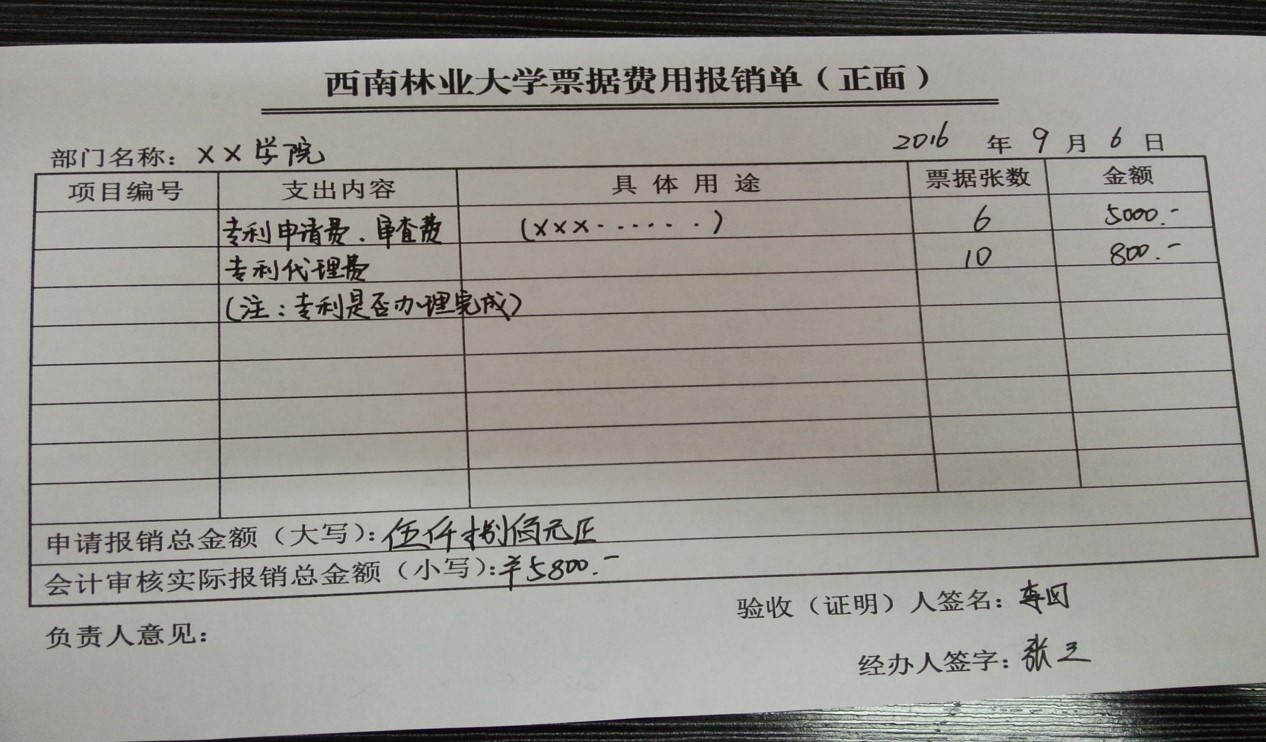 西南林业大学票据费用报销单（正面）
部门名称：××学院 2016 年 9 月 6 日
项目编号 支出内容 具体用途 票据张数 金额
专利申请费、审查费 (×××······) 6 5000.-
专利代理费 10 800.-
(注：专利是否办理完成)
申请报销总金额（大写）：伍仟捌佰元正
会计审核实际报销总金额（小写）：¥5800.-
验收（证明）人签名：李四
负责人意见：
经办人签字：张三